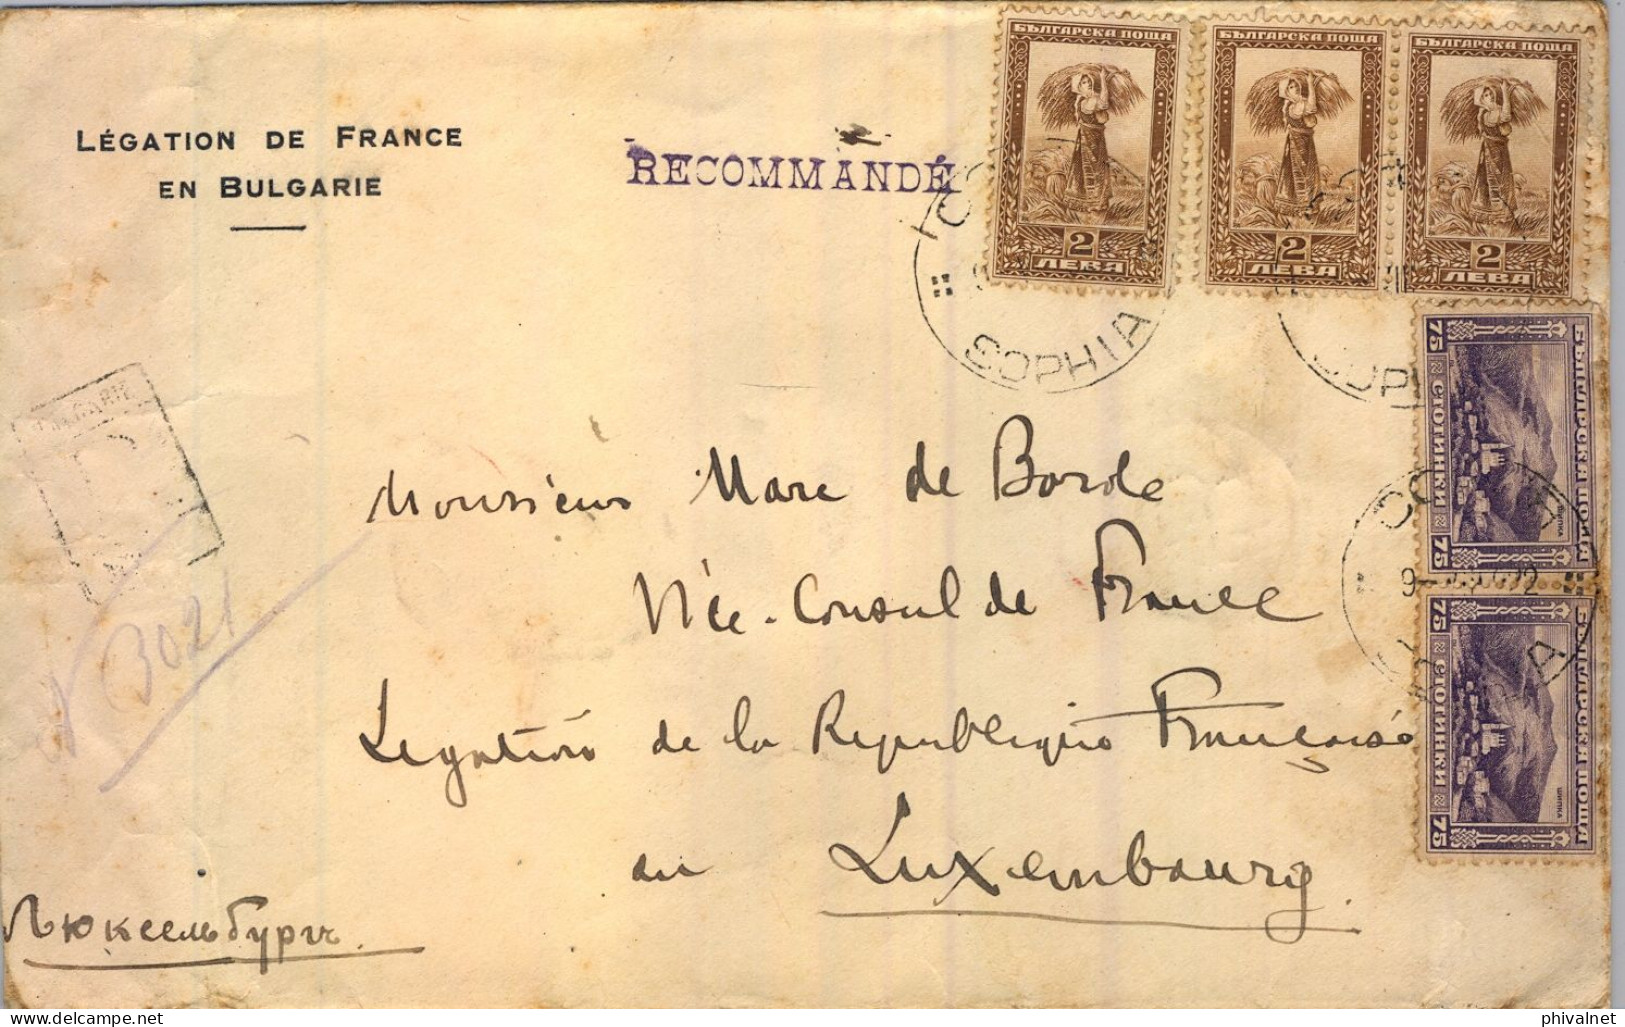 LÉGATION DE FRANCE
EN BULGARIE
RECOMMANDÉ
БЪЛГАРСКА ПОЩА
2
ЛЕВА
БЪЛГАРСКА ПОЩА
2
ЛЕВА
БЪЛГАРСКА ПОЩА
2
ЛЕВА
SOPHIA
БЪЛГАРСКА ПОЩА
ШИПКА
75 СТОТИНКИ 75
БЪЛГАРСКА ПОЩА
ШИПКА
75 СТОТИНКИ 75
Monsieur Marc de Borde
Vice-Consul de France
Légation de la République Française
au Luxembourg
3021
Люксембургъ
phivalnet